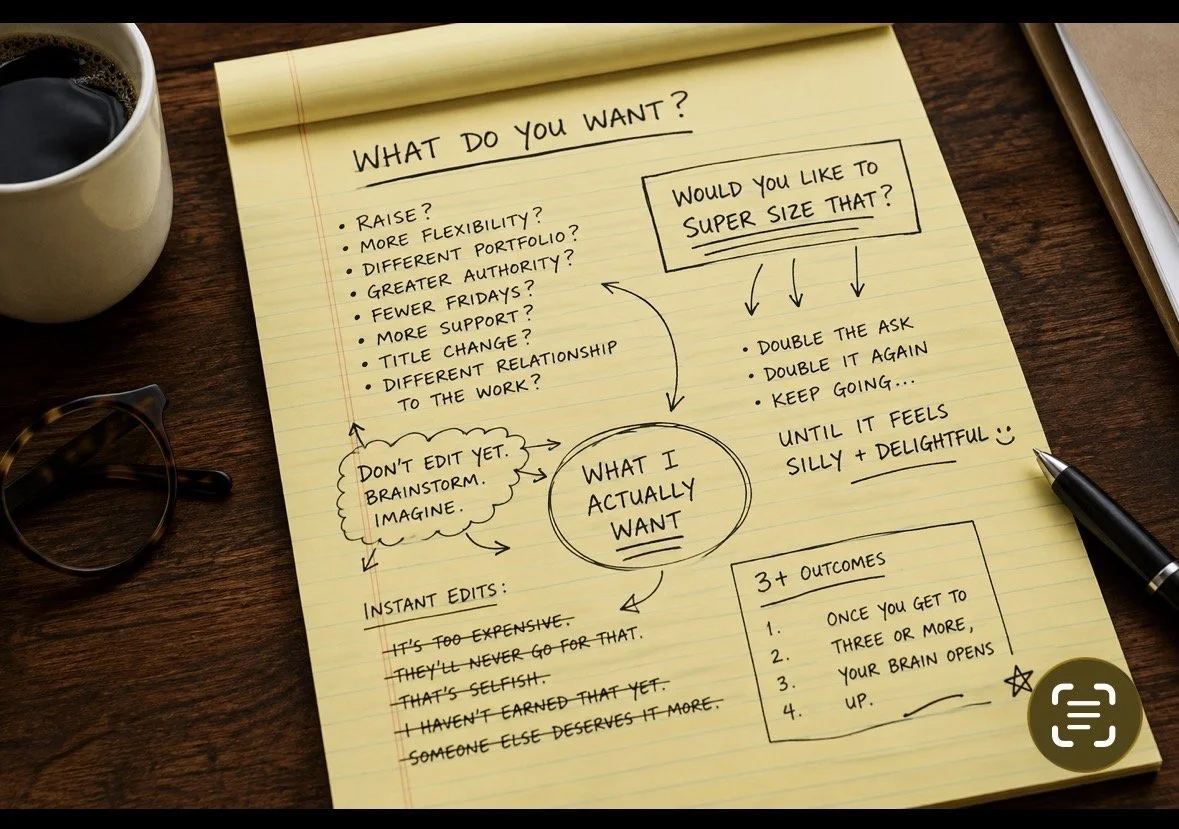 WHAT DO YOU WANT?
• RAISE?
• MORE FLEXIBILITY?
• DIFFERENT PORTFOLIO?
• GREATER AUTHORITY?
• FEWER FRIDAYS?
• MORE SUPPORT?
• TITLE CHANGE?
• DIFFERENT RELATIONSHIP
TO THE WORK?
WOULD YOU LIKE TO
SUPER SIZE THAT?
• DOUBLE THE ASK
• DOUBLE IT AGAIN
• KEEP GOING...
UNTIL IT FEELS
SILLY + DELIGHTFUL
DON'T EDIT YET.
BRAINSTORM.
IMAGINE.
WHAT I
ACTUALLY
WANT
INSTANT EDITS:
IT'S TOO EXPENSIVE.
THEY'LL NEVER GO FOR THAT.
THAT'S SELFISH.
I HAVEN'T EARNED THAT YET.
SOMEONE ELSE DESERVES IT MORE.
3+ OUTCOMES
1. ONCE YOU GET TO
2. THREE OR MORE,
3. YOUR BRAIN OPENS
4. UP.